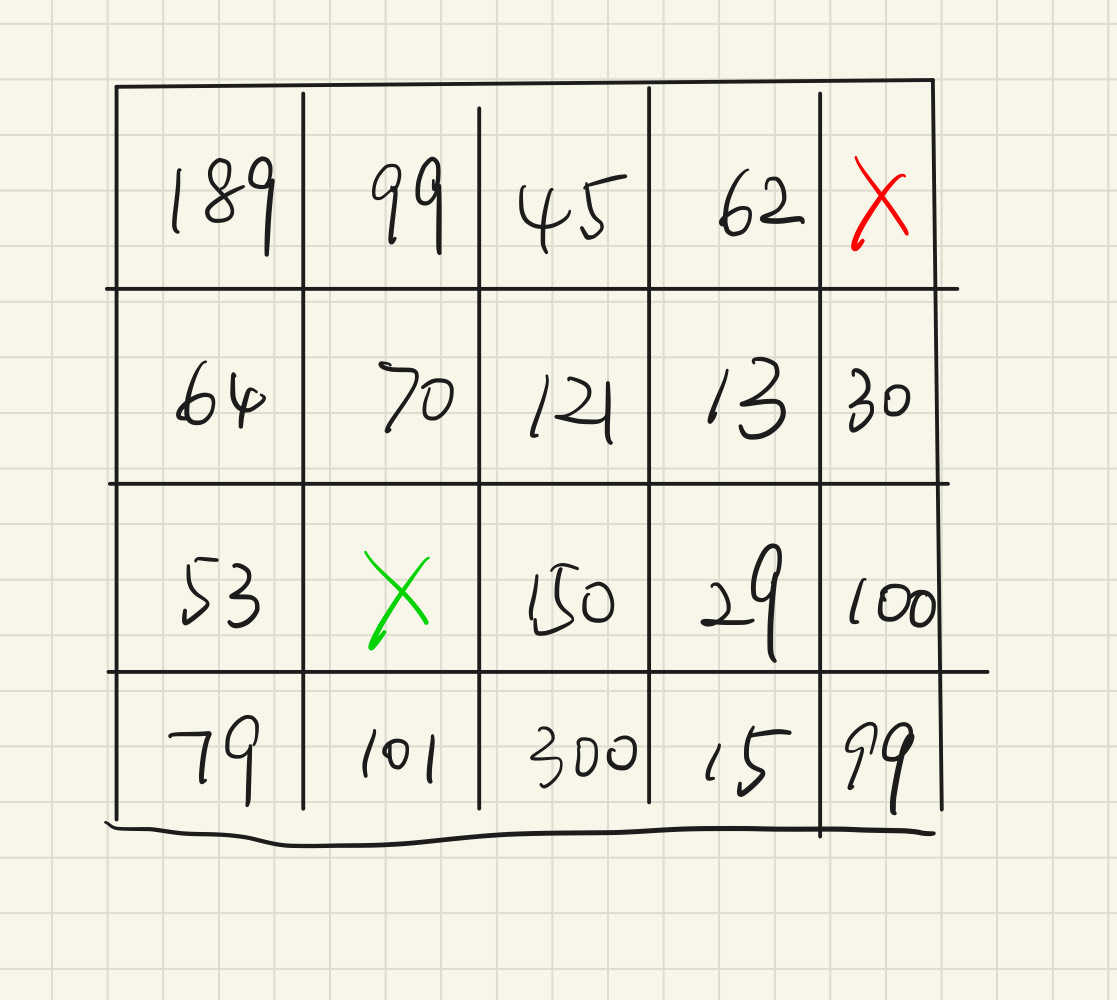 189 99 45 62 X
64 70 121 13 30
53 X 150 29 100
79 101 300 15 99